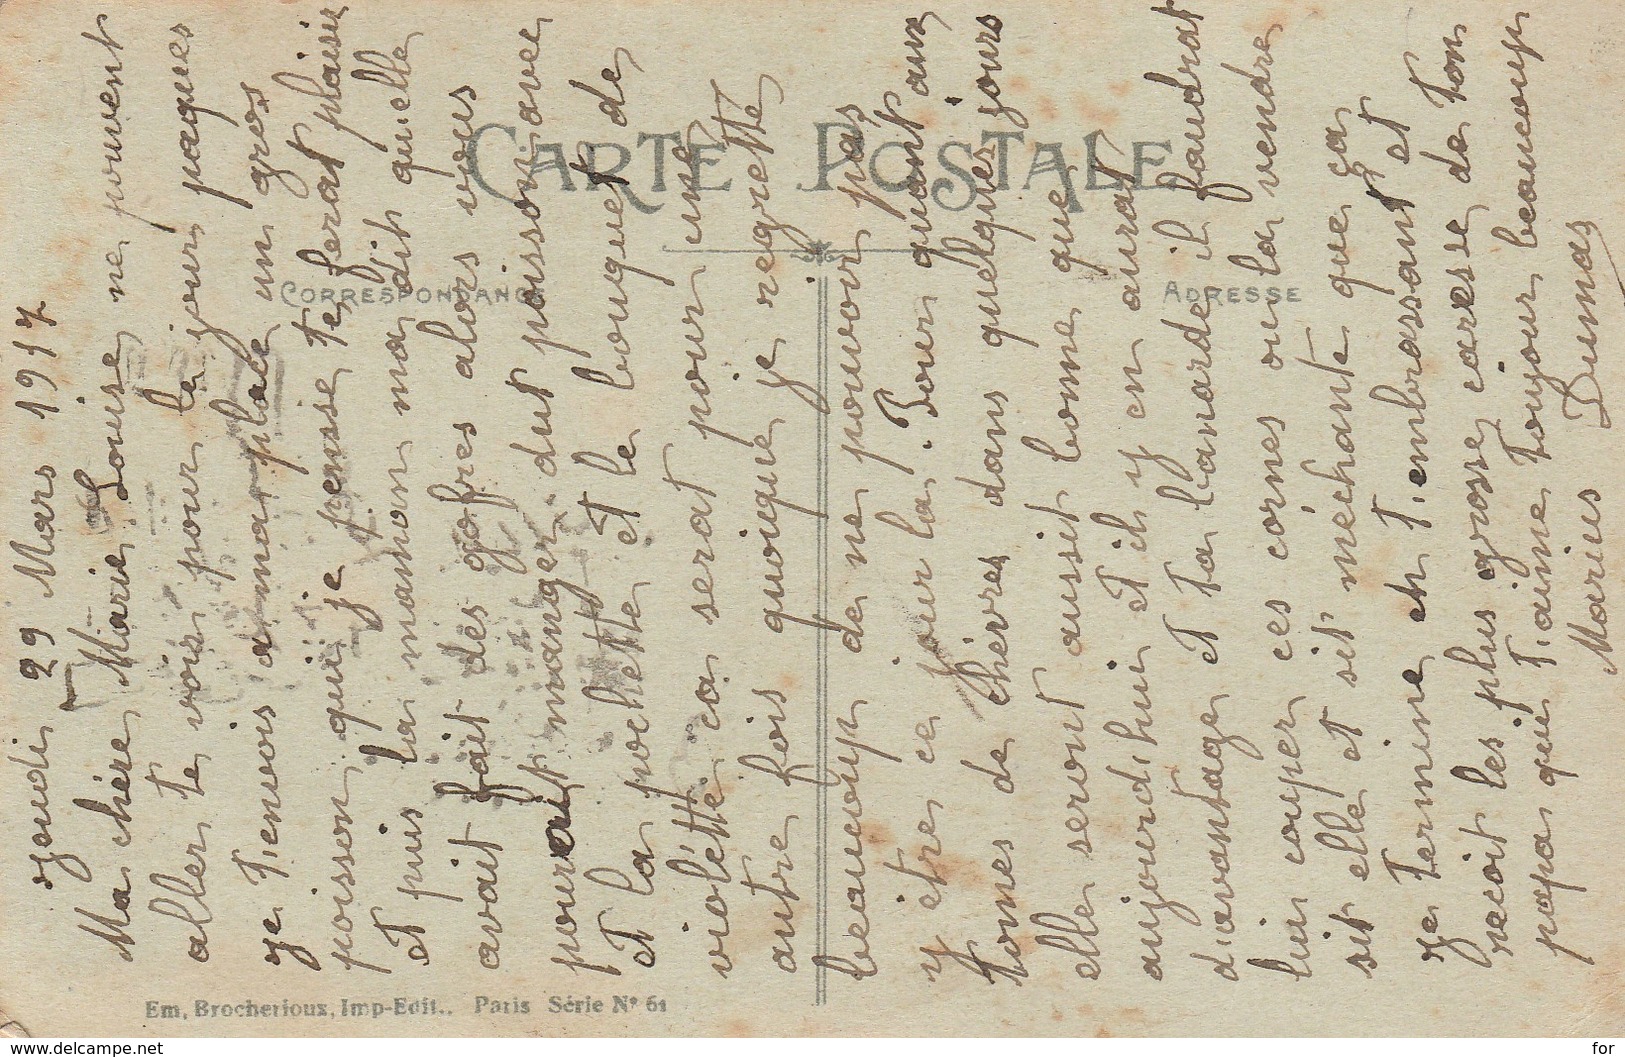 CARTE POSTALE
CORRESPONDANCE
ADRESSE
jeudi 29 Mars 1917
Ma chère Marie Louise ne pouvent
aller te voir pour le jour paques
je t'envoi a ma place un gros
poisson qui je pensse te ferat plaisir
et puis la maman ma dit qu'elle
avait fait des gofres alors vous
pourait manger dut poisson avec
et la pochette et le bouquet de
violètte ca serat pour une
autre fois quoique je regrette
beaucoup de ne pouvoir pas
y etre ce jour la. Pour quant aux
tomes de chèvres dans quelques jours
elle seront aussit bonne que
aujourd'hui et il y en aurat
d'avantage et ta canarde il faudrat
lui couper ces cornes ou la vendre
sit elle et sit méchante que ça
je termine en t'embrassant et
recoit les plus grosse caresse de ton
papa qui t'aime toujour beaucoup
Marius Dumas
Em. Brocherioux, Imp-Edit.. Paris Série N° 61
www.delcampe.net
for